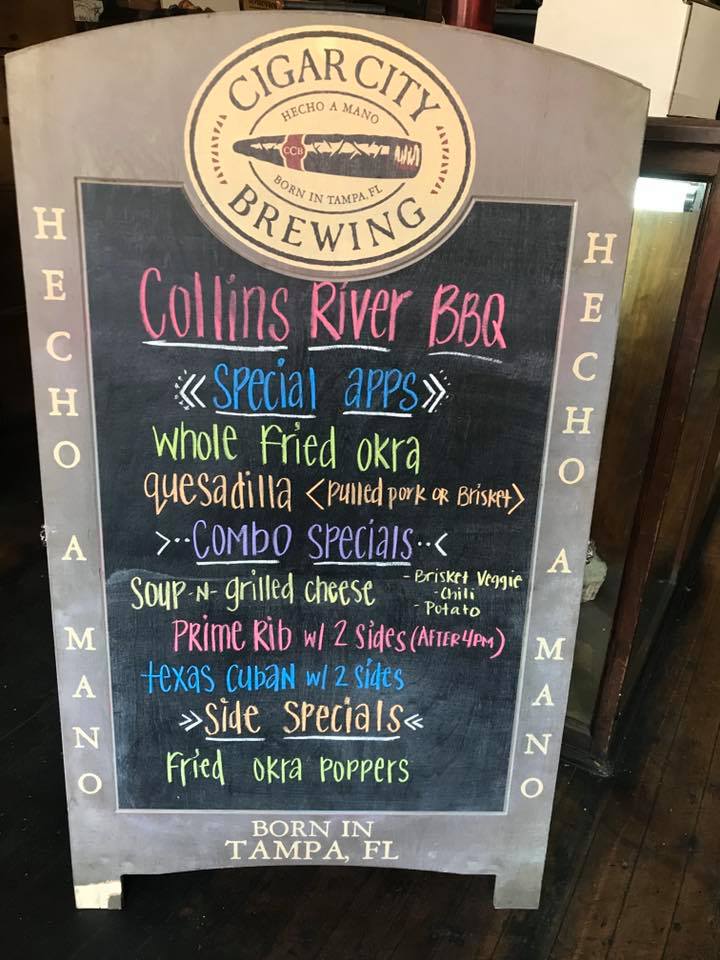 CIGAR CITY
HECHO A MANO
CCB
BORN IN TAMPA, FL
BREWING
HECHO A MANO
HECHO A MANO
Collins River BBQ
<< Special apps >>
whole fried okra
quesadilla <pulled pork or Brisket>
>--Combo specials--<
Soup-N-grilled cheese
- Brisket Veggie
- Chili
- Potato
Prime Rib w/ 2 sides (AFTER 4PM)
texas Cuban w/ 2 sides
>> Side Specials <<
Fried okra poppers
BORN IN
TAMPA, FL